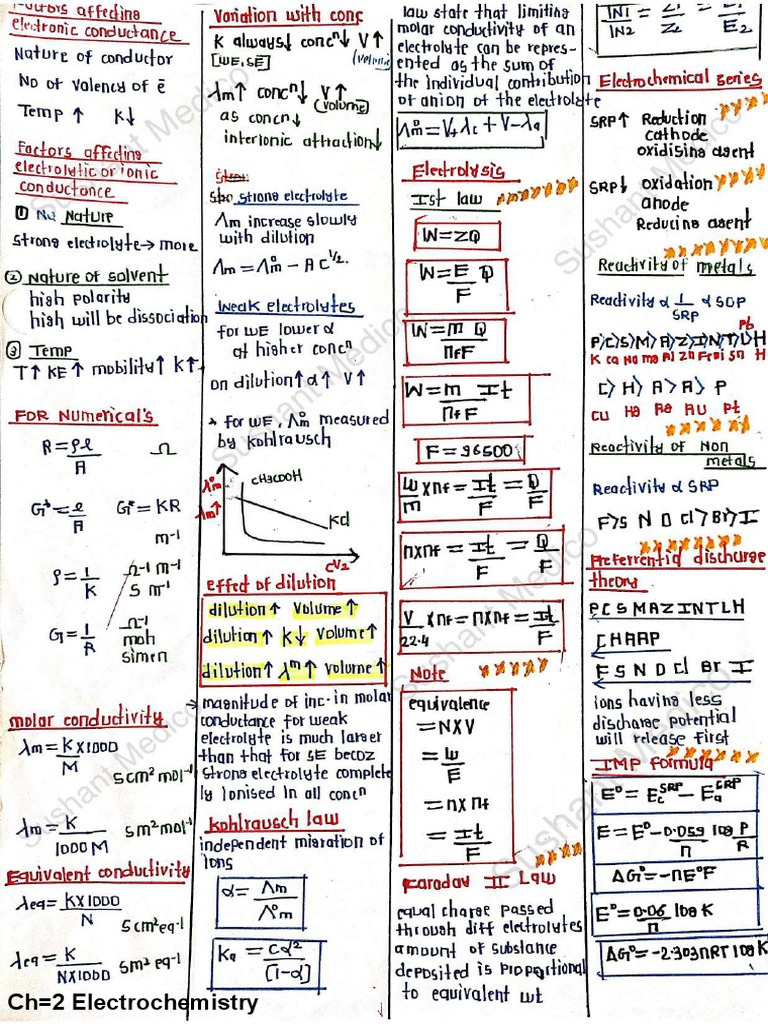 Factors affecting
electronic conductance
Nature of conductor
No of valency of ē
Temp ↑ K↓
Factors affecting
electrolytic or ionic
conductance
① Nature
strong electrolyte → more
② Nature of solvent
high polarity
high will be dissociation
③ Temp
T↑ KE↑ mobility↑ K↑
FOR Numerical's
R = ρl/A Ω
G* = l/A G* = KR
m-1
ρ = 1/K Ω-1 m-1
S m-1
G = 1/R Ω-1
moh
simen
molar conductivity
λm = K×1000/M
S cm² mol-1
λm = K/1000M S m² mol-1
Equivalent conductivity
λeq = K×1000/N
S cm² eq-1
λeq = K/N×1000 S m² eq-1
Ch=2 Electrochemistry
Variation with conc
K always↓ concⁿ↓ V↑
[WE, SE] (volume)
λm↑ concⁿ↓ V↑
(volume)
as concⁿ↓
interionic attraction↓
strong electrolyte
Λm increase slowly
with dilution
Λm = Λ°m − A C^1/2.
Weak electrolytes
for WE lower α
at higher concⁿ
on dilution↑ α↑ V↑
* for WE, Λ°m measured
by kohlrausch
λ°m
λm↑
CH3COOH
Kcl
C1/2
effect of dilution
dilution↑ Volume↑
dilution↑ K↓ Volume↑
dilution↑ λm↑ volume↑
→ magnitude of inc. in molar
conductance for weak
electrolyte is much larger
than that for SE becoz
strong electrolyte complete
ly ionised in all concⁿ
Kohlrausch law
independent migration of
ions
α = Λm/Λ°m
Ka = Cα²/[1-α]
law state that limiting
molar conductivity of an
electrolyte can be repres-
ented as the sum of
the individual contribution
of anion of the electrolyte
Λ°m = V+λc + V−λa
Electrolysis
Ist law
W = ZQ
W = E/F Q
W = m Q/nf F
W = m It/nf F
F = 96500
w/m × nf = It/F = Q/F
n×nf = It/F = Q/F
V/22.4 × nf = n×nf = It/F
Note
equivalence
= N×V
= W/E
= n×nf
= It/F
Faraday II Law
equal charge passed
through diff electrolytes
amount of substance
deposited is proportional
to equivalent wt
IN1/IN2 = Z1/Z2 = E1/E2
Electrochemical series
SRP↑ Reduction
cathode
oxidising agent
SRP↓ oxidation
anode
Reducing agent
Reactivity of metals
Reactivity α 1/SRP α SOP
Pb
P>C>S>M>A>Z>I>N>T>L>H
K Ca Na mg Al Zn Fe Ni Sn H
C> H> A> A> P
Cu Hg Ag Au Pt
Reactivity of Non
metals
Reactivity α SRP
F>S N O Cl>Br>I
Preferrential discharge
theory
P C S M A Z I N T L H
CHAAP
F S N O Cl Br I
ions having less
discharge potential
will release first
IMP formula
E° = Ec SRP − Ea SRP
E = E° − 0.059/n log P/R
ΔG° = −nE°F
E° = 0.06/n log K
ΔG° = −2.303nRT log K
Sushant Medico
Sushant Medico
Sushant Medico
Sushant Medico
Sushant Medico
Sushant Medico